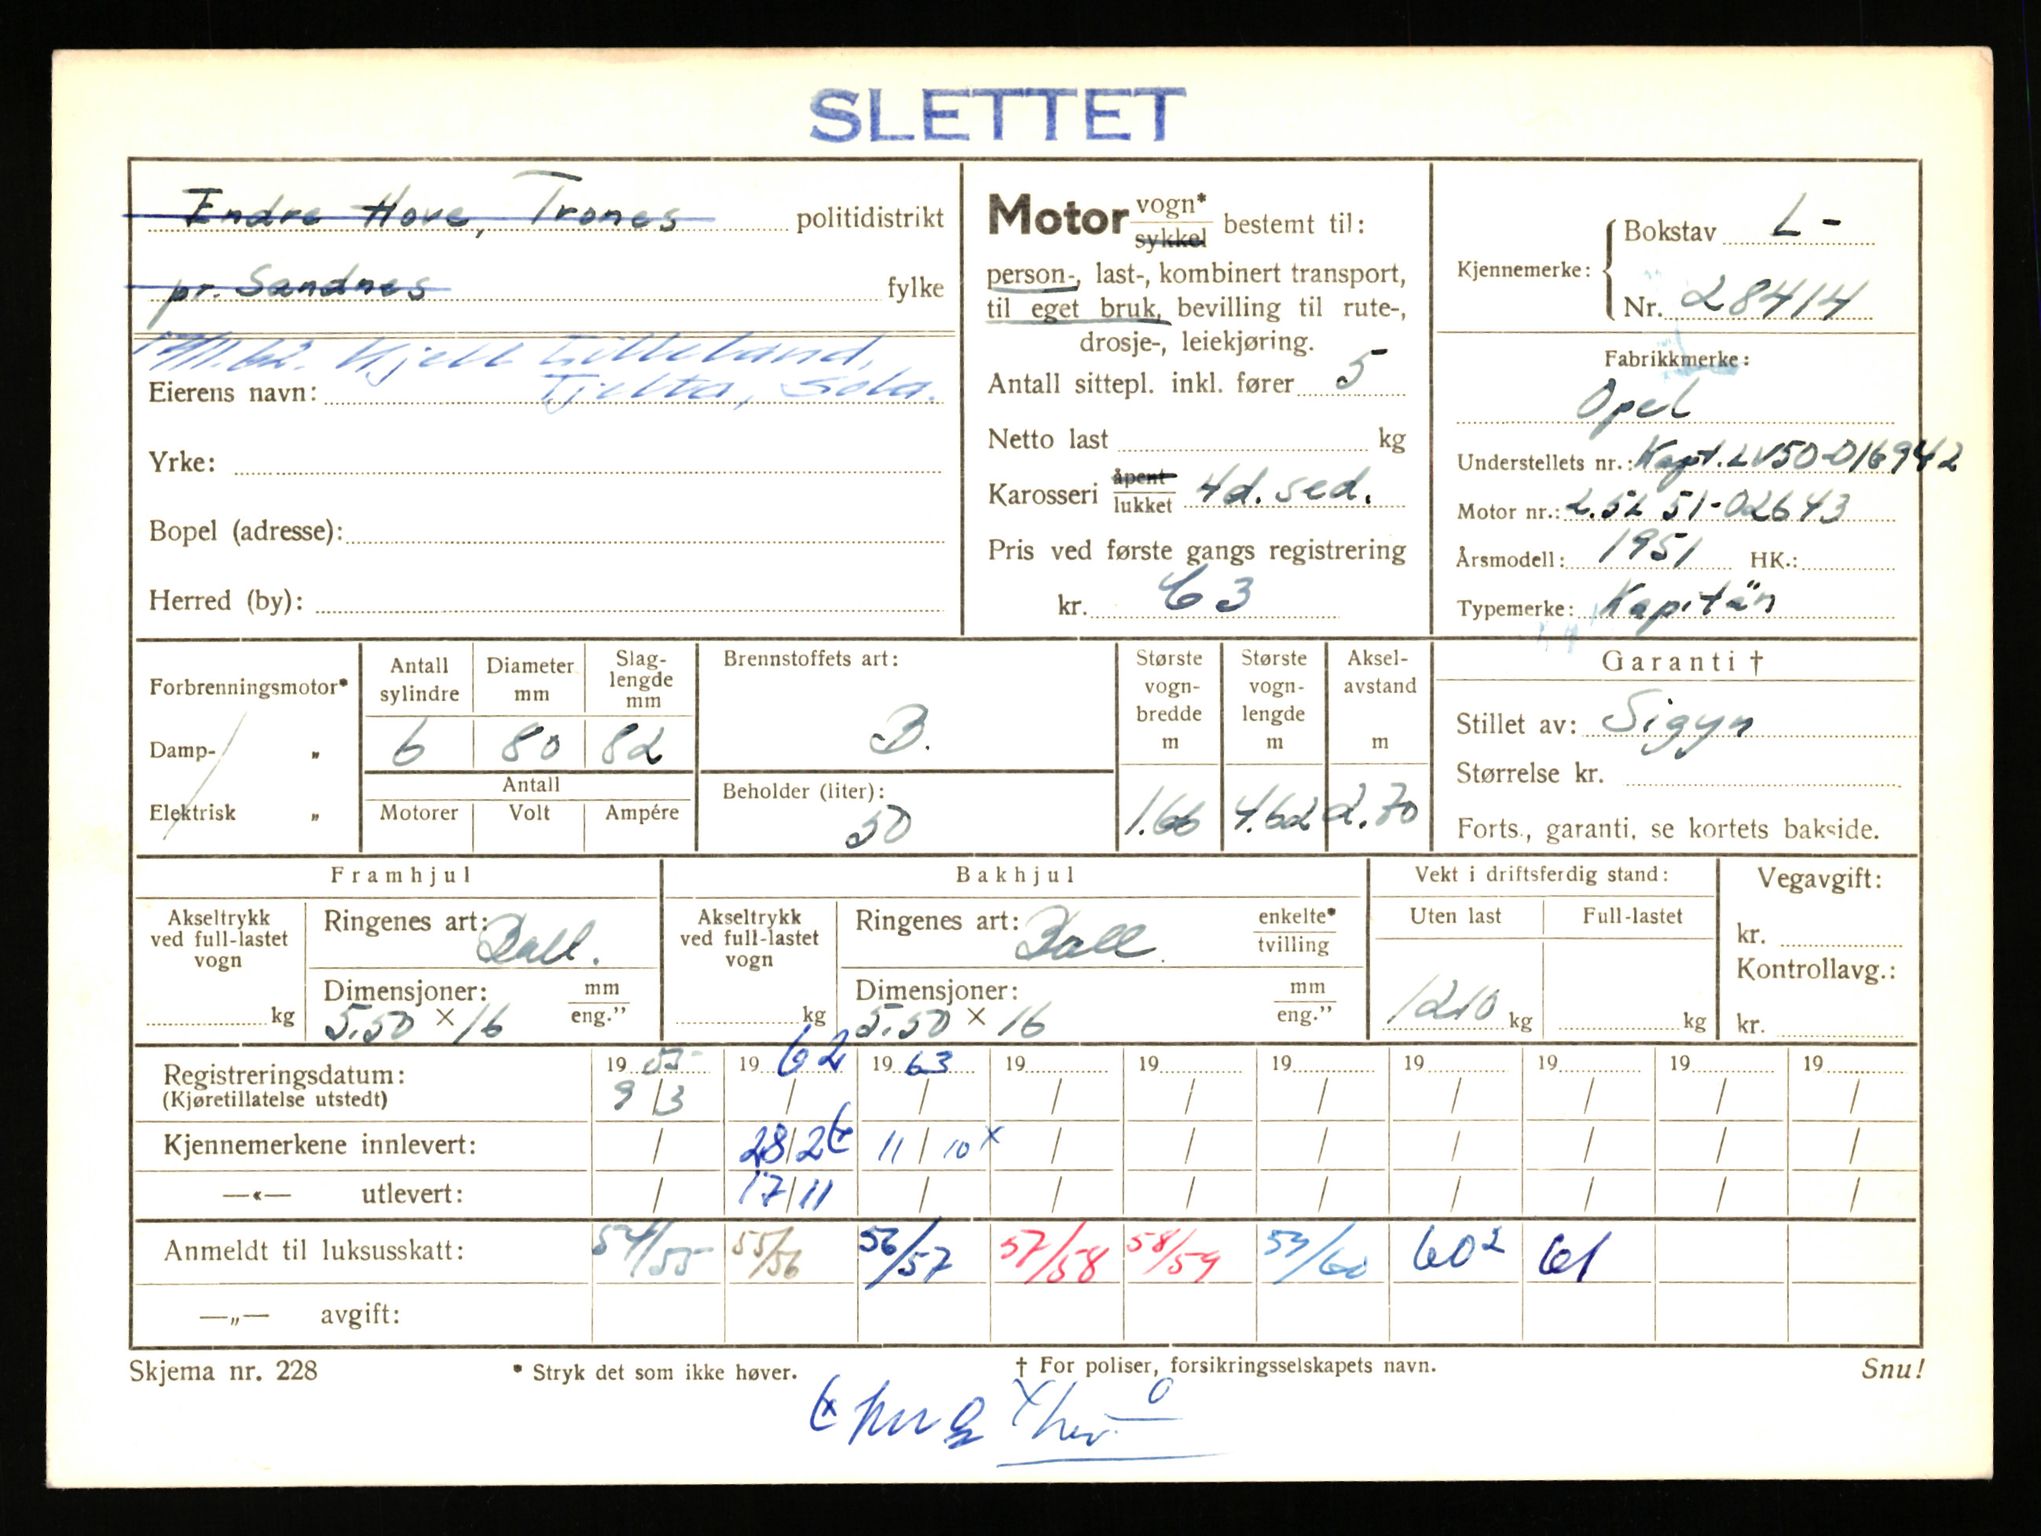 SLETTET
Endre Hove, Trones politidistrikt
pr. Sandnes fylke
17/11.62. Kjell Lilleland,
Eierens navn: Tjelta, Sola.
Yrke:
Bopel (adresse):
Herred (by):
Motor vogn* sykkel bestemt til:
person-, last-, kombinert transport,
til eget bruk, bevilling til rute-,
drosje-, leiekjøring.
Antall sittepl. inkl. fører 5
Netto last kg
Karosseri åpent lukket 4d. sed.
Pris ved første gangs registrering
kr. 63
Kjennemerke: Bokstav L-
Nr. 28414
Fabrikkmerke:
Opel
Understellets nr.: Kapt. LV50-016942
Motor nr.: 2.5L 51-02643
Årsmodell: 1951 HK.:
Typemerke: Kapitän
Forbrenningsmotor*
Damp- „
Elektrisk „
Antall sylindre Diameter mm Slag-lengde mm
6 80 82
Antall
Motorer Volt Ampére
Brennstoffets art:
B.
Beholder (liter):
50
Største vogn-bredde m Største vogn-lengde m Aksel-avstand m
1.66 4.62 2.70
Garanti †
Stillet av: Sigyn
Størrelse kr.
Forts., garanti, se kortets bakside.
Framhjul
Akseltrykk ved full-lastet vogn
kg
Ringenes art: Ball.
Dimensjoner: mm eng.”
5.50 × 16
Bakhjul
Akseltrykk ved full-lastet vogn
kg
Ringenes art: Ball. enkelte* tvilling
Dimensjoner: mm eng.”
5.50 × 16
Vekt i driftsferdig stand:
Uten last Full-lastet
1210 kg kg
Vegavgift:
kr.
Kontrollavg.:
kr.
Registreringsdatum: 19 55 19 62 19 63 19 19 19 19 19 19 19
(Kjøretillatelse utstedt) 9/3 / / / / / / / / /
Kjennemerkene innlevert: / 28/2 11/10 x / / / / / / /
—«— utlevert: / 17/11 / / / / / / / /
Anmeldt til luksusskatt: 54/55 55/56 56/57 57/58 58/59 59/60 60² 61
—„— avgift:
Skjema nr. 228 * Stryk det som ikke høver. † For poliser, forsikringsselskapets navn. Snu!